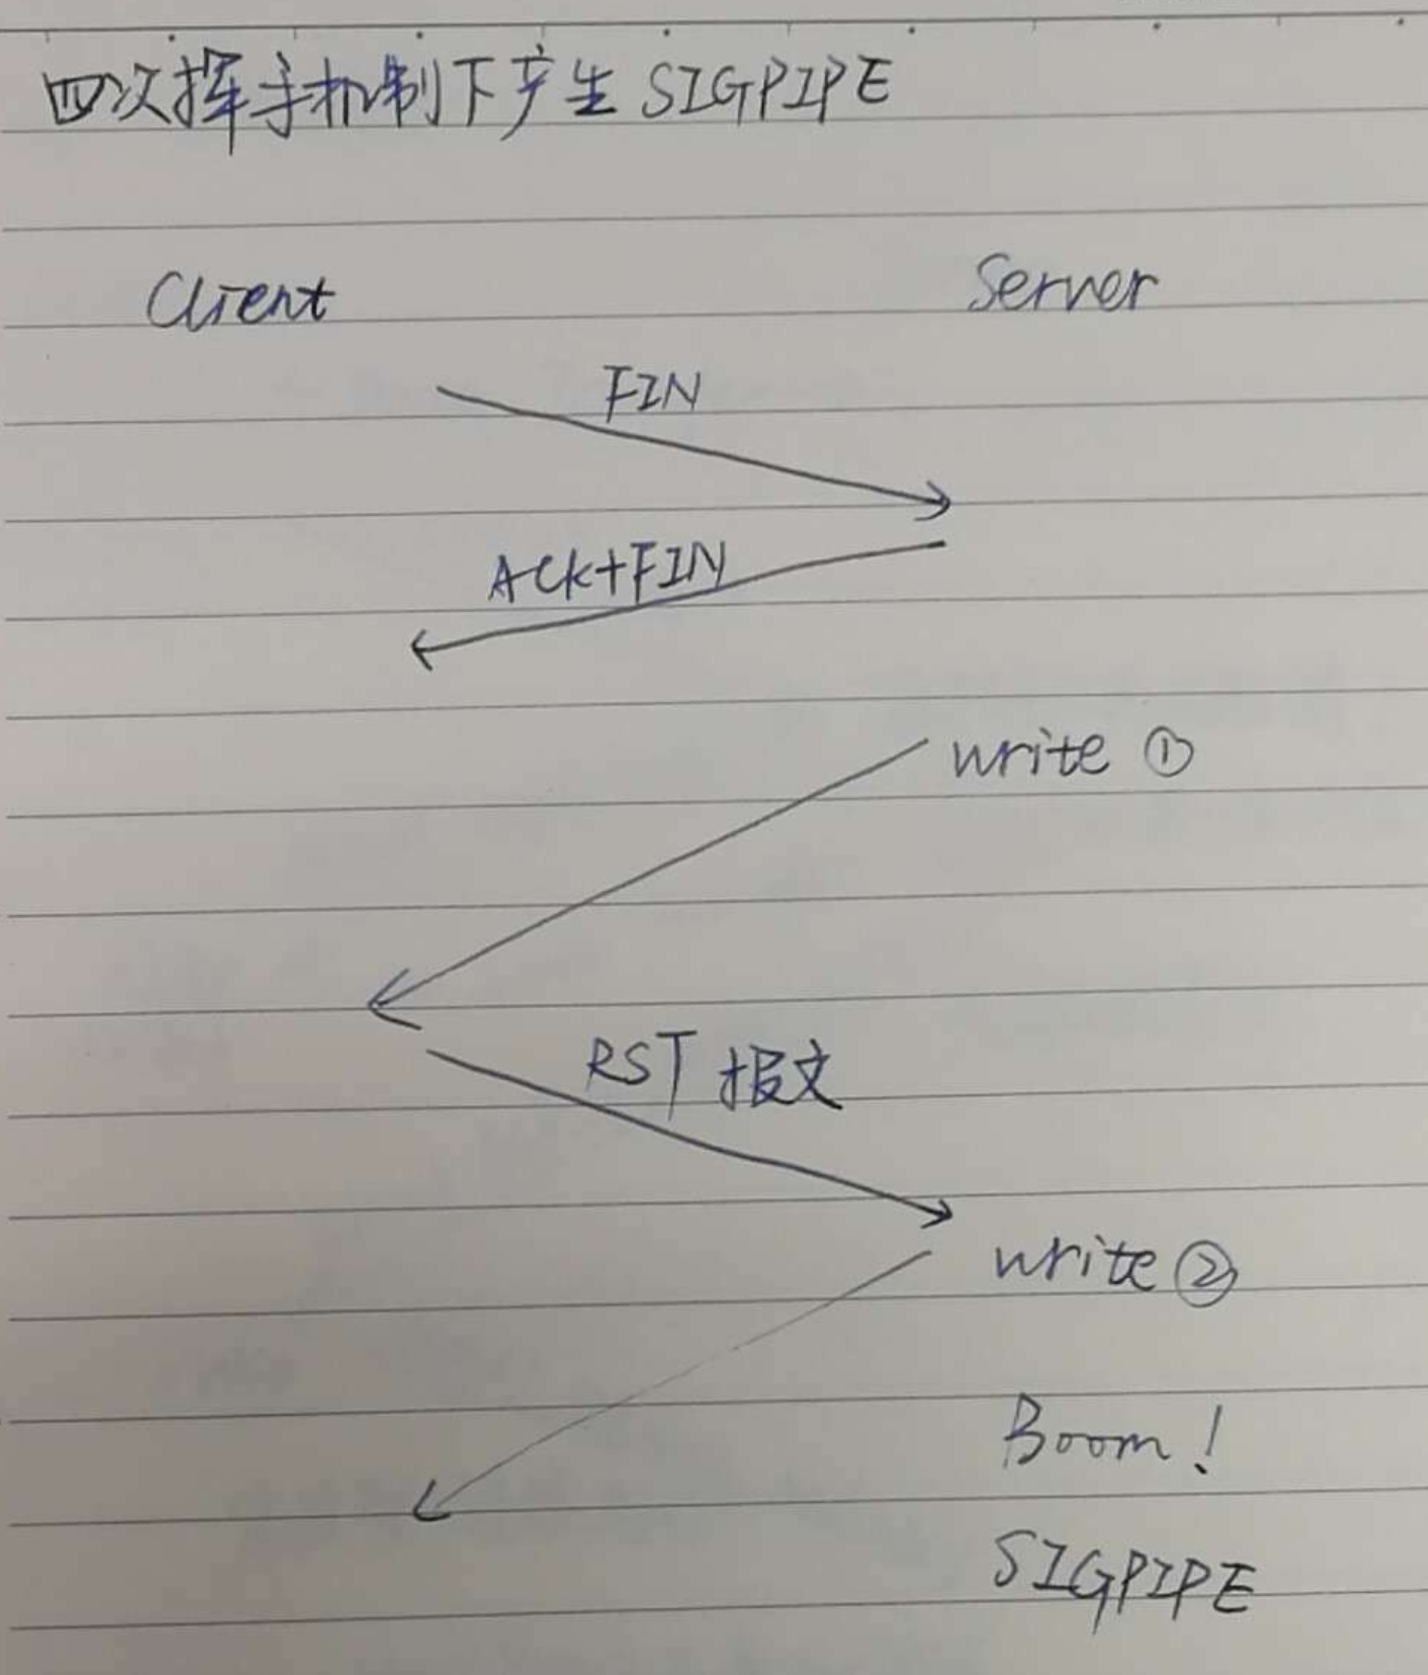 四次挥手机制下产生 SIGPIPE
Client Server
FIN
ACK+FIN
write ①
RST 报文
write ②
Boom!
SIGPIPE